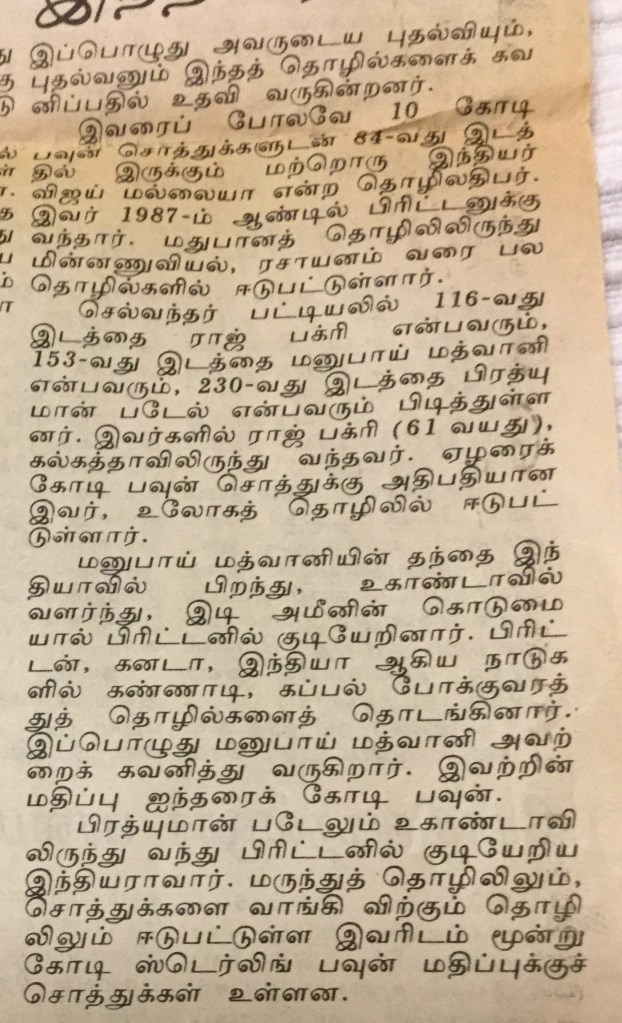 இப்பொழுது அவருடைய புதல்வியும்,
புதல்வனும் இந்தத் தொழில்களைக் கவ
னிப்பதில் உதவி வருகின்றனர்.
இவரைப் போலவே 10 கோடி
பவுன் சொத்துக்களுடன் 84-வது இடத்
தில் இருக்கும் மற்றொரு இந்தியர்
விஜய் மல்லையா என்ற தொழிலதிபர்.
இவர் 1987-ம் ஆண்டில் பிரிட்டனுக்கு
வந்தார். மதுபானத் தொழிலிலிருந்து
மின்னணுவியல், ரசாயனம் வரை பல
தொழில்களில் ஈடுபட்டுள்ளார்.
செல்வந்தர் பட்டியலில் 116-வது
இடத்தை ராஜ் பக்ரி என்பவரும்,
153-வது இடத்தை மனுபாய் மத்வானி
என்பவரும், 230-வது இடத்தை பிரத்யு
மான் படேல் என்பவரும் பிடித்துள்ள
னர். இவர்களில் ராஜ் பக்ரி (61 வயது),
கல்கத்தாவிலிருந்து வந்தவர். ஏழரைக்
கோடி பவுன் சொத்துக்கு அதிபதியான
இவர், உலோகத் தொழிலில் ஈடுபட்
டுள்ளார்.
மனுபாய் மத்வானியின் தந்தை இந்
தியாவில் பிறந்து, உகாண்டாவில்
வளர்ந்து, இடி அமீனின் கொடுமை
யால் பிரிட்டனில் குடியேறினார். பிரிட்
டன், கனடா, இந்தியா ஆகிய நாடுக
ளில் கண்ணாடி, கப்பல் போக்குவரத்
துத் தொழில்களைத் தொடங்கினார்.
இப்பொழுது மனுபாய் மத்வானி அவற்
றைக் கவனித்து வருகிறார். இவற்றின்
மதிப்பு ஐந்தரைக் கோடி பவுன்.
பிரத்யுமான் படேலும் உகாண்டாவி
லிருந்து வந்து பிரிட்டனில் குடியேறிய
இந்தியராவார். மருந்துத் தொழிலிலும்,
சொத்துக்களை வாங்கி விற்கும் தொழி
லிலும் ஈடுபட்டுள்ள இவரிடம் மூன்று
கோடி ஸ்டெர்லிங் பவுன் மதிப்புக்குச்
சொத்துக்கள் உள்ளன.